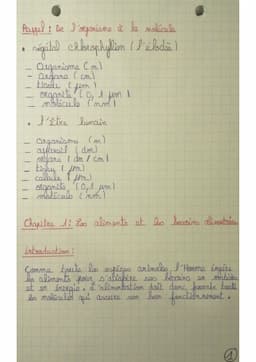 Rappel : De l'organisme à la molécule
• végétal chlorophyllien (l'élodée)
— Organisme (m)
— Organe (cm)
— tissu (µm)
— organite (0,1 µm)
— molécule (nm)
• l'être humain
— organisme (m)
— appareil (dm)
— organe (dm / cm)
— tissu (µm)
— cellule (µm)
— organite (0,1 µm)
— molécule (nm)
Chapitre 1: Les aliments et les besoins alimentaires
Introduction :
Comme toutes les espèces animales, l'Homme ingère
les aliments pour satisfaire ses besoins en matière
et en énergie. L'alimentation doit donc fournir toutes
les molécules qui assurent son bon fonctionnement.
1